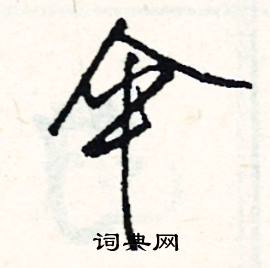 伞
词典网